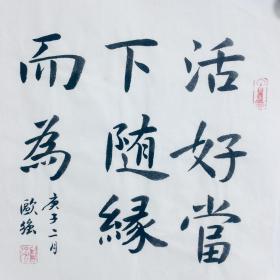 活好當
下随緣
而為
庚子二月
歐強